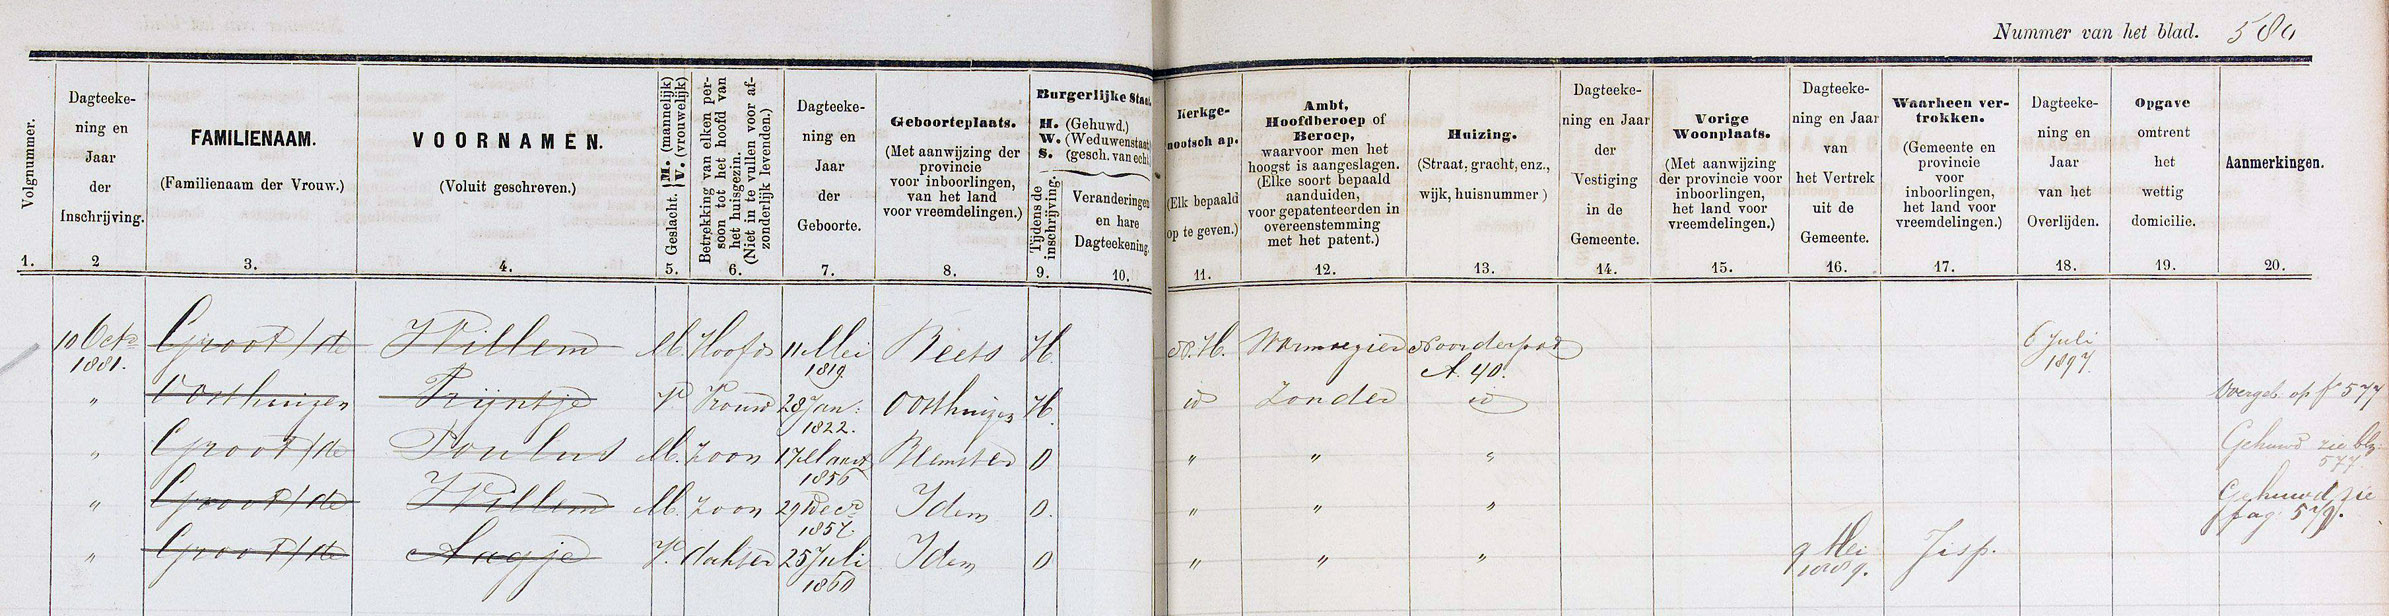 Nummer van het blad. 580
Volgnummer.
1.
Dagteeke-
ning en
Jaar
der
Inschrijving.
2
FAMILIENAAM.
(Familienaam der Vrouw.)
3.
VOORNAMEN.
(Voluit geschreven.)
4.
Geslacht. { M. (mannelijk)
V. (vrouwelijk)
5.
Betrekking van elken per-
soon tot het hoofd van
het huisgezin.
(Niet in te vullen voor af-
zonderlijk levenden.)
6.
Dagteeke-
ning en
Jaar
der
Geboorte.
7.
Geboorteplaats.
(Met aanwijzing der
provincie
voor inboorlingen,
van het land
voor vreemdelingen.)
8.
Burgerlijke Staat.
H. (Gehuwd.)
W. (Weduwenstaat
S. (gesch. van echt
Tijdens de
inschrijving.
9.
Veranderingen
en hare
Dagteekening.
10.
Kerkge-
nootsch ap.
(Elk bepaald
op te geven.)
11.
Ambt,
Hoofdberoep of
Beroep,
waarvoor men het
hoogst is aangeslagen.
(Elke soort bepaald
aanduiden,
voor gepatenteerden in
overeenstemming
met het patent.)
12.
Huizing.
(Straat, gracht, enz.,
wijk, huisnummer)
13.
Dagteeke-
ning en Jaar
der
Vestiging
in de
Gemeente.
14.
Vorige
Woonplaats.
(Met aanwijzing
der provincie voor
inboorlingen,
het land voor
vreemdelingen.)
15.
Dagteeke-
ning en Jaar
van
het Vertrek
uit de
Gemeente.
16.
Waarheen ver-
trokken.
(Gemeente en
provincie
voor
inboorlingen,
het land voor
vreemdelingen.)
17.
Dagteeke-
ning en
Jaar
van het
Overlijden.
18.
Opgave
omtrent
het
wettig
domicilie.
19.
Aanmerkingen.
20.
10 Octr Groot/de Willem M. Hoofd 11 Mei Beets H. N.H. Noorderpad 6 Juli
1881. 1819. A. 40. 1897.
" Oosthuizen Trijntje V. Vrouw 28 Jan: Oosthuizen H. id Zonder id Overgeb. op fo 577
1822.
" Groot/de Poulus M. Zoon 17 Maart Beemster O " " " Gehuwd zie blz:
1856 577.
" Groot/de Willem M. Zoon 29 Decr Idem O. " " " Gehuwd zie
1857. pag. 579.
" Groot/de Aagje V. dahter 25 Juli Idem O " " " 9 Mei Jisp.
1860 1889.